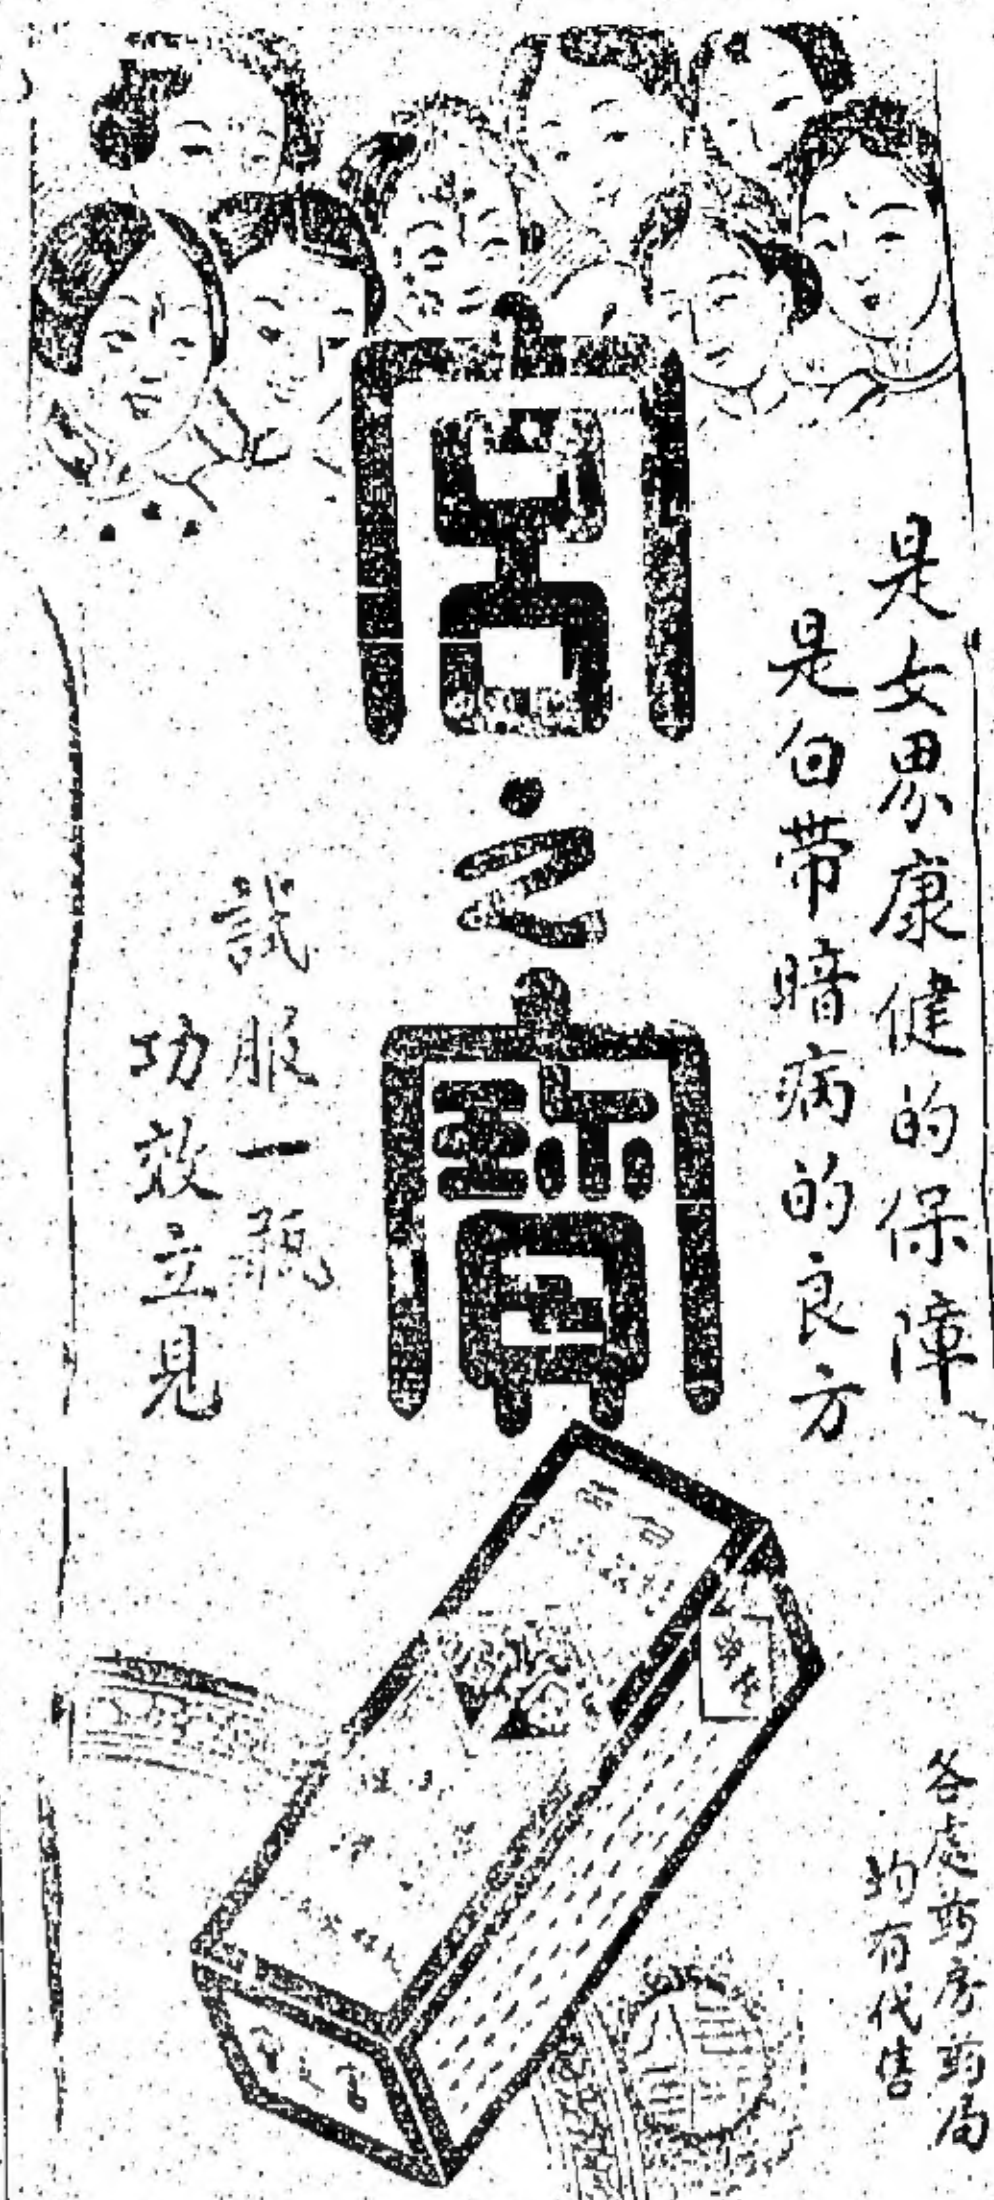 是女界康健的保障
是白带暗病的良方
宮之寶
試服一瓶
功效立見
各處葯房葯局
均有代售